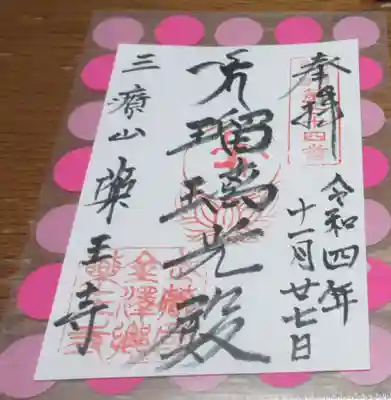 奉拝
令和四年
十一月廿七日
瑠璃光殿
三療山薬王寺